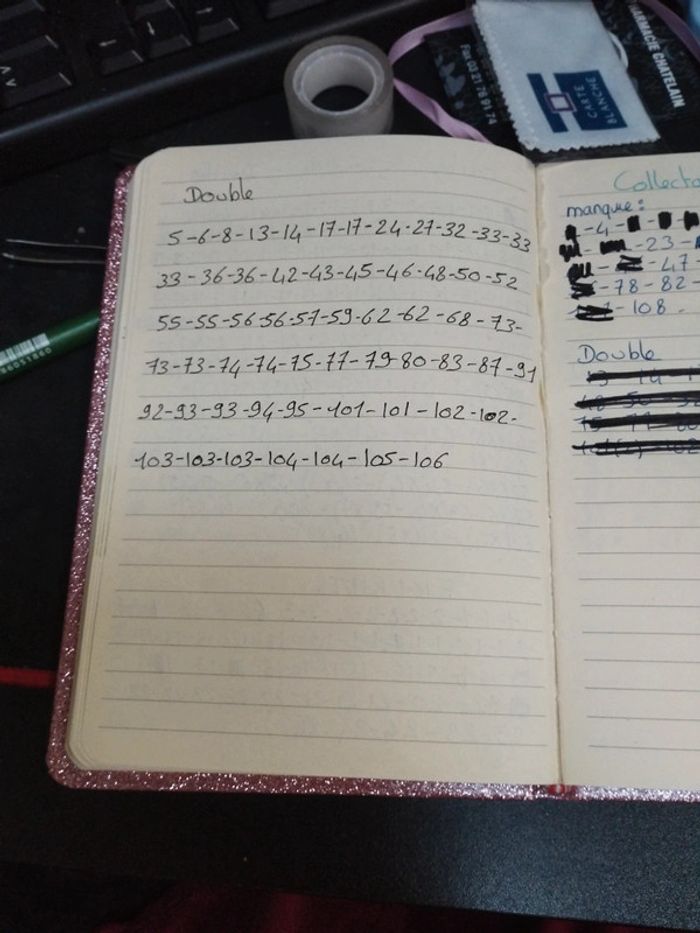 Double
5-6-8-13-14-17-17-24-27-32-33-33
33-36-36-42-43-45-46-48-50-52
55-55-56-56-57-59-62-62-68-73-
73-73-74-74-75-77-79-80-83-87-91
92-93-93-94-95-101-101-102-102-
103-103-103-104-104-105-106
Collecto
manque:
-4-
-23-
-47-
-78-82-
-108-
Double
PHARMACIE CHATELAIN
CARTE
BLANCHE